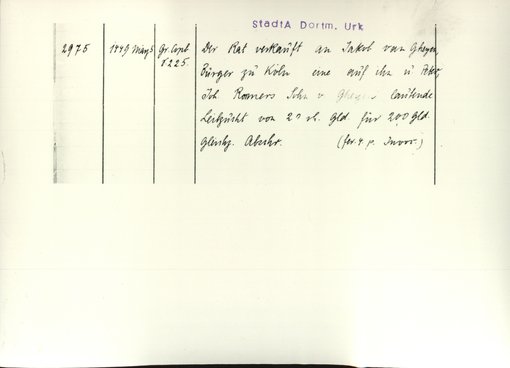 StadtA Dortm. Urk
2975 1449 May 5 Gr. Copb Der Rat verkauft an Jakob van Gheyen,
f 225. Bürger zu Köln eine auf ihn u Peter,
Joh. Romers Sohn v. lautende
Leibzucht von 20 rh. Gld für 200 Gld.
Abschr. (fer. 4. p. Invoc.)